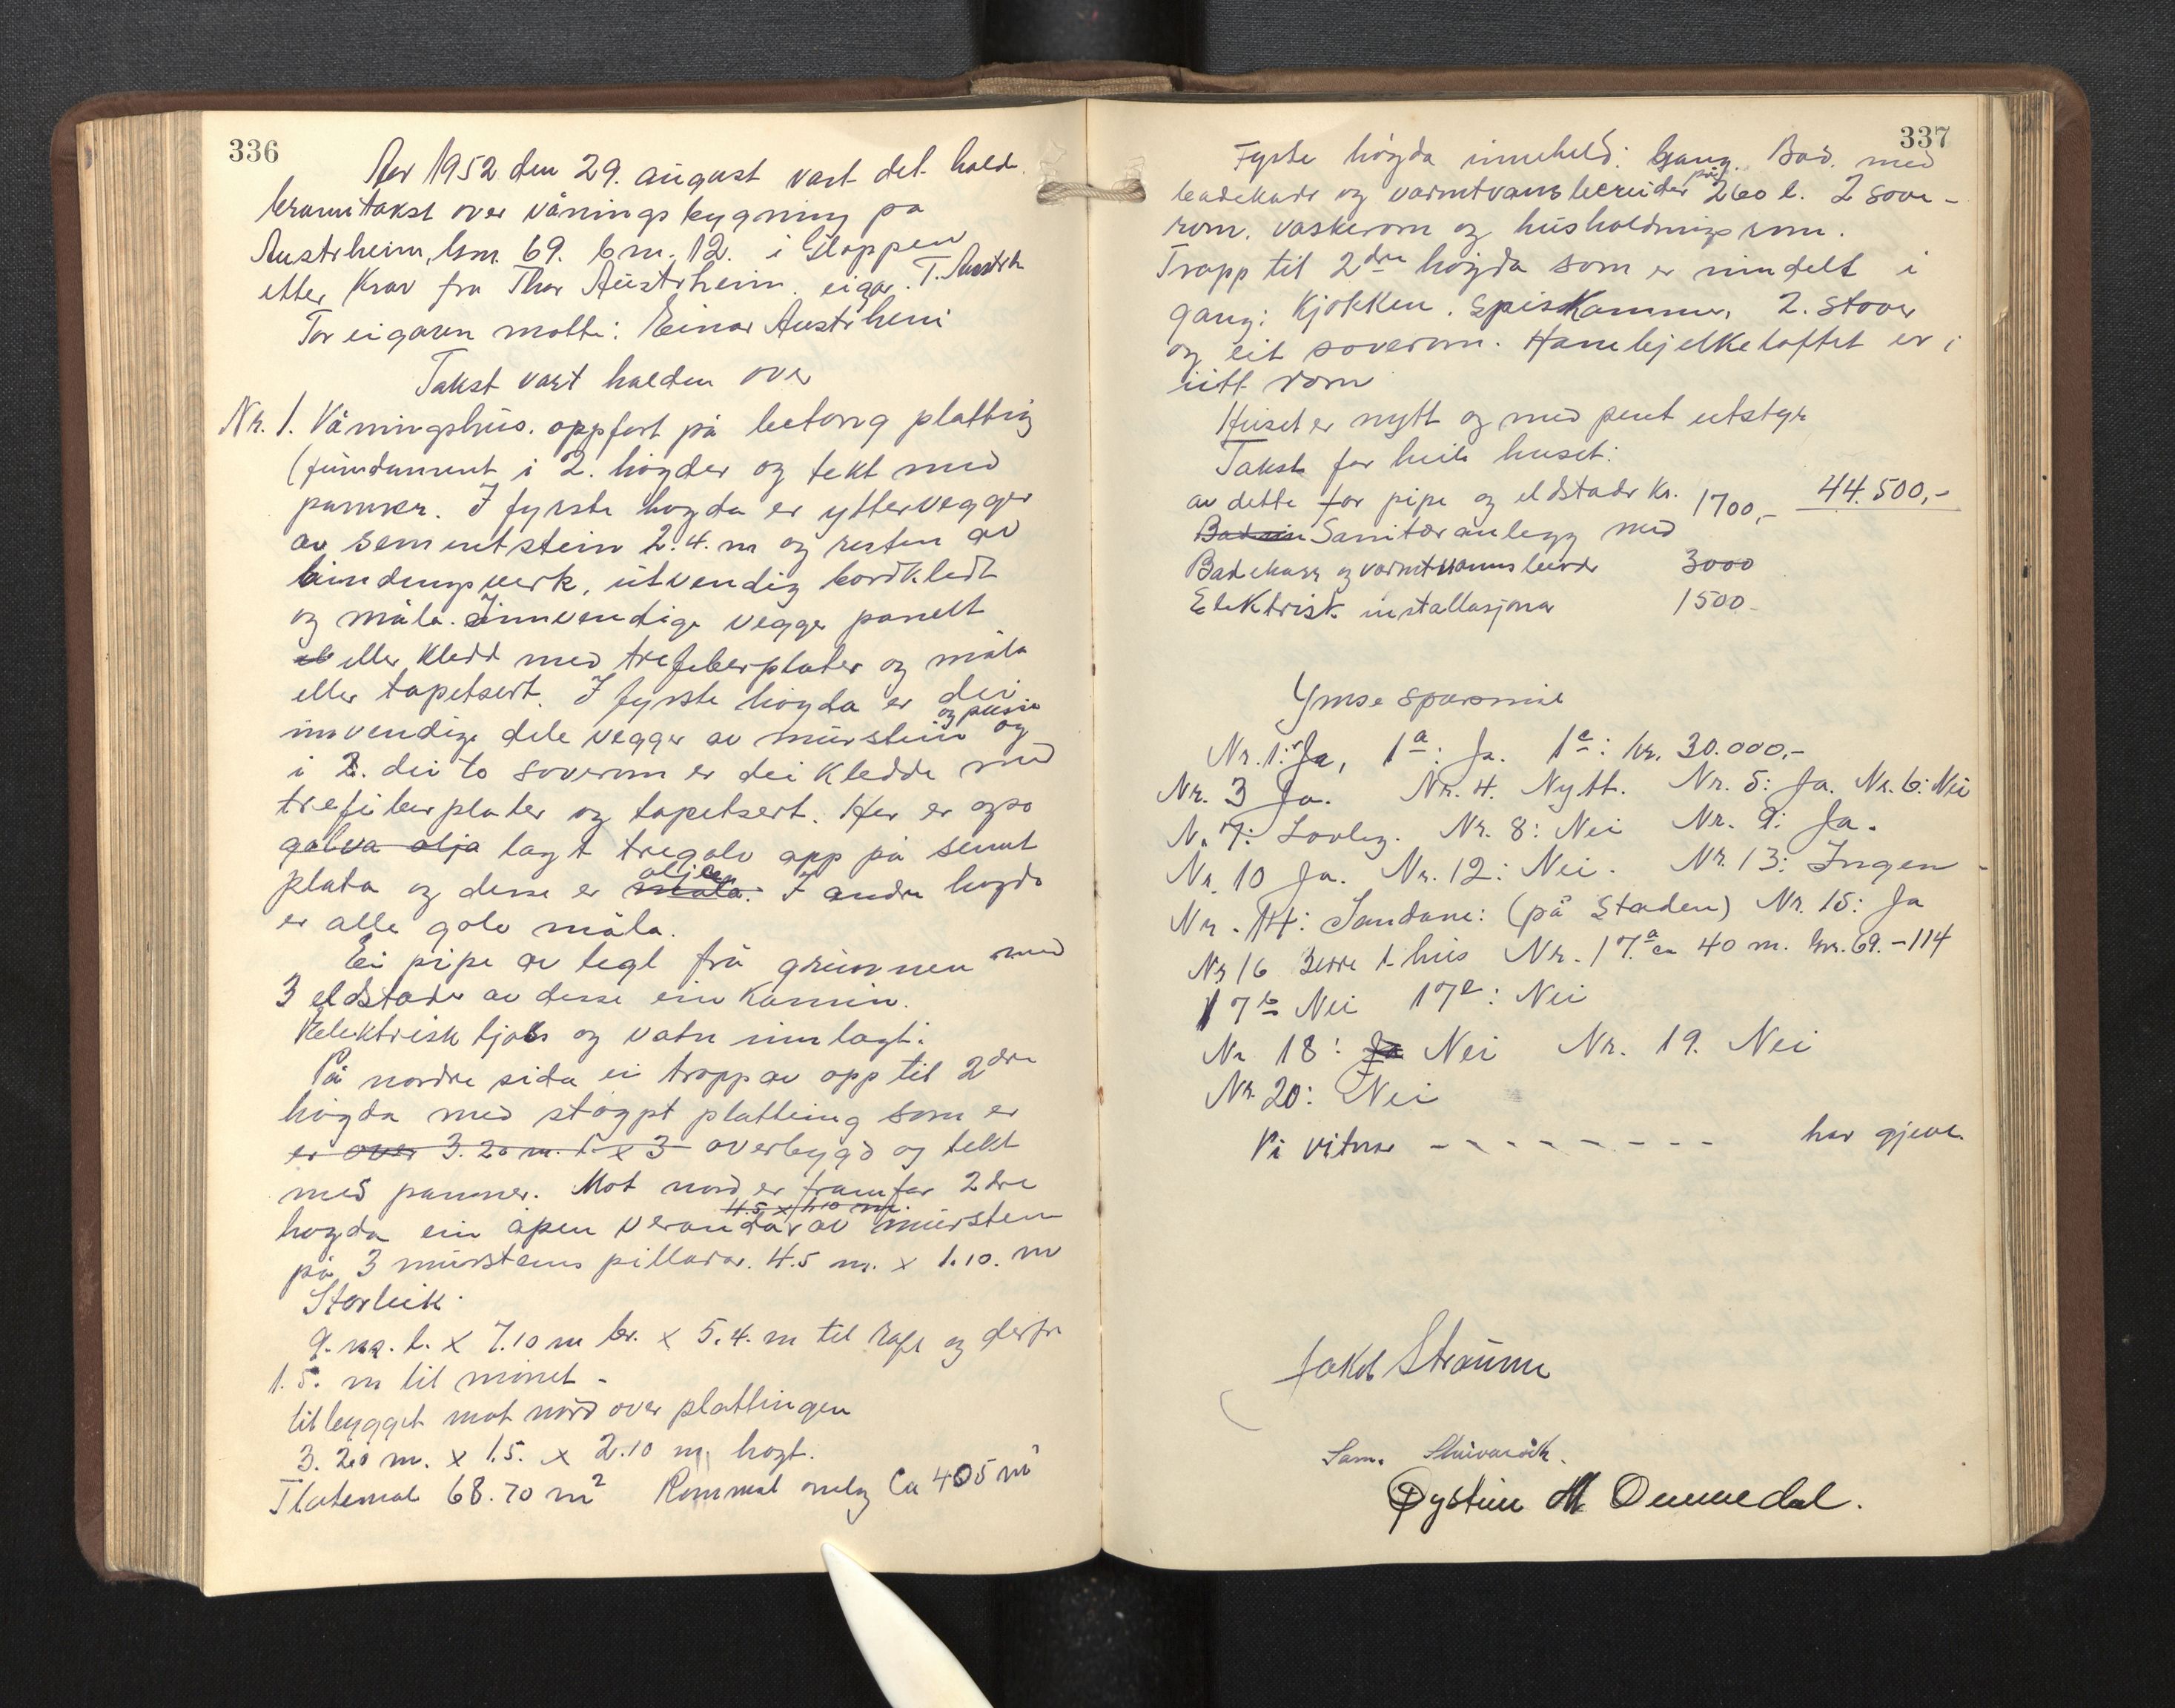 336
Aar 1952 den 29. august vart det halde
branntakst over våningsbygning på
Austrheim, gnr. 69. bnr. 12. i Gloppen
etter krav fra Thor Austrheim. eigar. T. Austrh
For eigaren møtte: Einar Austrheim
Takst vart halden over
Nr. 1. Våningshus. oppført på betong platting
(fundament i 2. høgder og tekt med
panner. I fyrste høgda er yttervegger
av sementstein 2.4. m og resten av
bindingsverk, utvendig bordkledt
og måla. Innvendige vegger panelt
el eller kledd med trefiberplater og måla
eller tapetsert. I fyrste høgda er dei
innvendige dele vegger av murstein og pussa og
i 2. dei to soverom er dei kledde med
trefiberplater og tapetsert. Her er også
golva olja lagt tregolv opp på sement
plata og desse er måla. oljen I andre høgda
er alle golv måla.
Ei pipe av tegl frå grunnen med
3 eldstader av desse ein kamin.
Elektrisk ljos og vatn innlagt.
På nordre sida ei tropp av opp til 2dre
høgda med støypt platting som er
er over 3.20 m. l x 3 overbygd og tekt
med panner. Mot nord er framfor 2dre
4.5 x 1.10 m.
høgda ein åpen veranda av murstein
på 3 murstens pillarar. 4.5 m. x 1.10. m
Storleik.
9. m. l. x 7.10 m br. x 5.4. m til raft og derfra
1.5. m til mønet -
tilbygget mot nord over plattingen
3. 20 m. x 1.5. x 2.10 m. høgt.
Flatemål 68.70 m2 Rommål omlag Ca 405 m3
337
Fyrste høgda inneheld: Gang. Bad. med
badekar og varmtvansbereider på 260 l. 2 sove-
rom. vaskerom og husholdnings rom.
Tropp til 2dre høgda som er inndelt i
gang: kjøkken. spiskammer, 2. stover
og eit soverom. Hanebjelkeloftet er i
eitt rom
Huset er nytt og med pent utstyr
Takst for heile huset: 44.500,-
av dette for pipe og eldstader kr. 1700,-
Sanitæranlegg med
Badekar og varmtvannsbereder 3000
Elektrisk installasjonar 1500-
Ymse spørsmål
Nr. 1: Ja, 1a: Ja. 1c: kr. 30.000,-
Nr. 3 Ja. Nr. 4. Nytt. Nr. 5: Ja. Nr. 6: Nei
N. 7: Lovleg. Nr. 8: Nei Nr. 9: Ja.
Nr. 10 Ja. Nr. 12: Nei. Nr. 13: Ingen -
Nr. 14: Sandane: (på Staden) Nr. 15: Ja
Nr 16 Berre 1. hus Nr. 17.a ca 40 m. Gnr. 69. - 114
17b Nei 17c: Nei
Nr 18: Ja Nei Nr. 19. Nei
Nr. 20: Nei
Vi vitnar - - - - - - - - - har gjeve.
Jakob Straume
Sam.
Øystein M Ommedal.